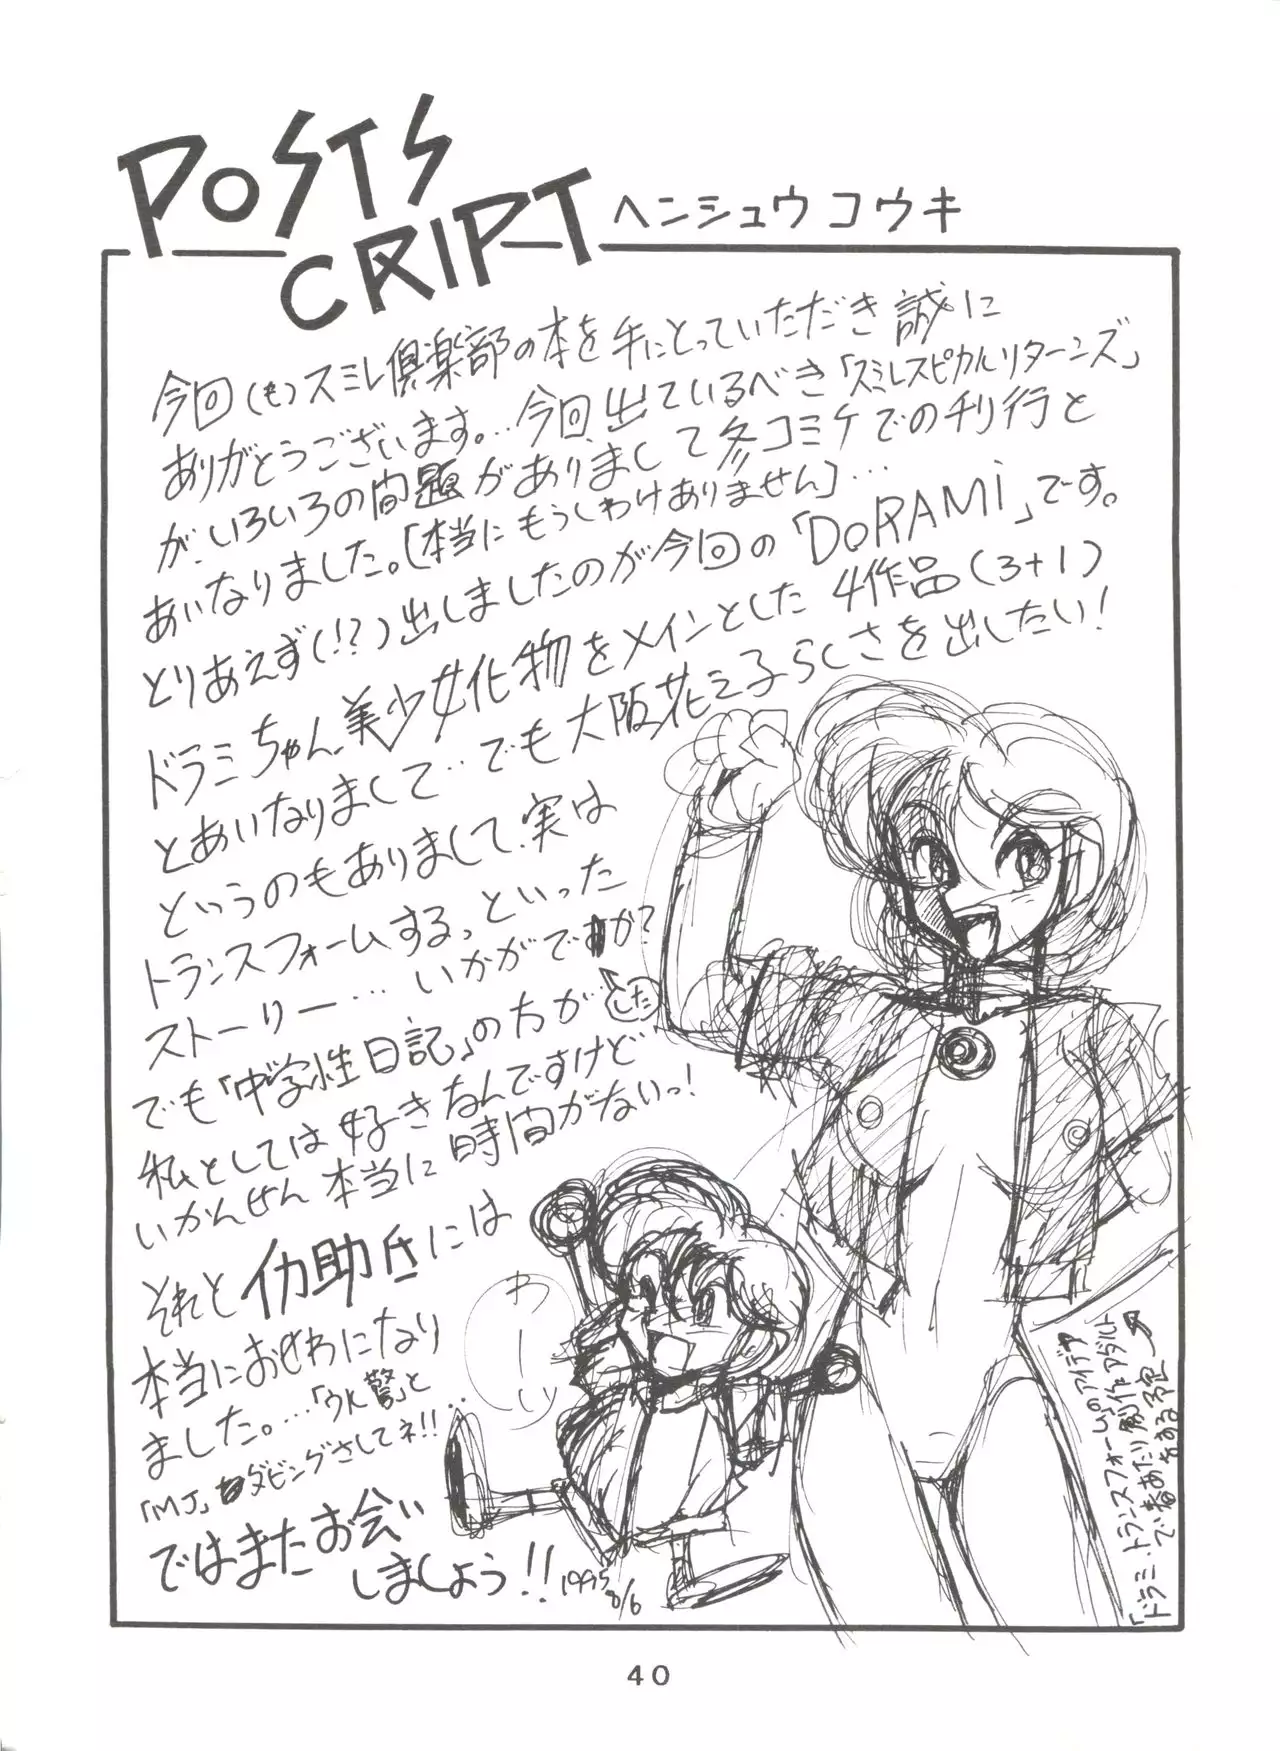 POSTS
CRIPT
ヘンシュウ コウキ
今回(も)スミレ倶楽部の本を手にとっていただき誠に
ありがとうございます。…今回、出ているべき「スミレスピカルリターンズ」
が、いろいろの問題がありまして冬コミケでの刊行と
あいなりました。[本当にもうしわけありません]…
とりあえず(!?)出しましたのが今回の「DORAMi」です。
ドラミちゃん、美少女化物をメインとした4作品(3+1)
とあいなりまして‥でも大阪花子らしさを出したい!
というのもありまして、実は
トランスフォームする、といった
ストーリー…いかがですか?
した
でも「中学性日記」の方が…
私としては好きなんですけど
いかんせん本当に時間がないっ!
それと 仂助氏には
本当におせわになり
ました。…「ウル警」と
「MJ」ダビングさしてネ!!‥
ではまたお会い
しましょう!! 1995 8/6
わーい
「ドラミ・トランスフォーム」のアイデア
で着あたり劇作アダルト
40